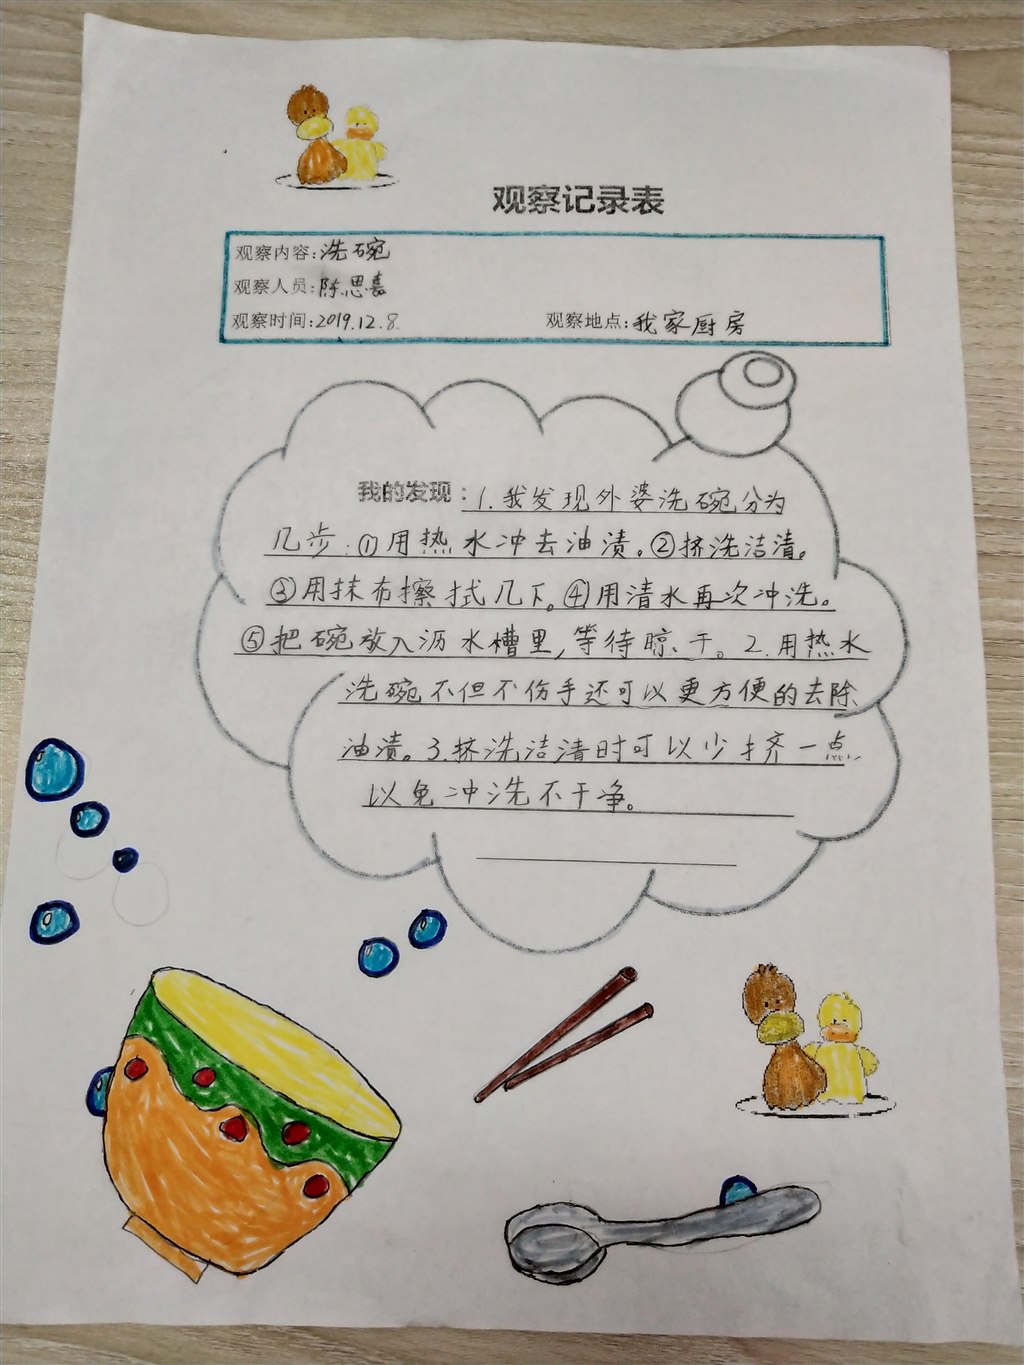 观察记录表
观察内容:洗碗
观察人员:陈思嘉
观察时间:2019.12.8.
观察地点:我家厨房
我的发现:1.我发现外婆洗碗分为
几步:①用热水冲去油渍。②挤洗洁清。
③用抹布擦拭几下。④用清水再次冲洗。
⑤把碗放入沥水槽里,等待晾干。2.用热水
洗碗不但不伤手还可以更方便的去除
油渍。3.挤洗洁清时可以少挤一点,
以免冲洗不干净。